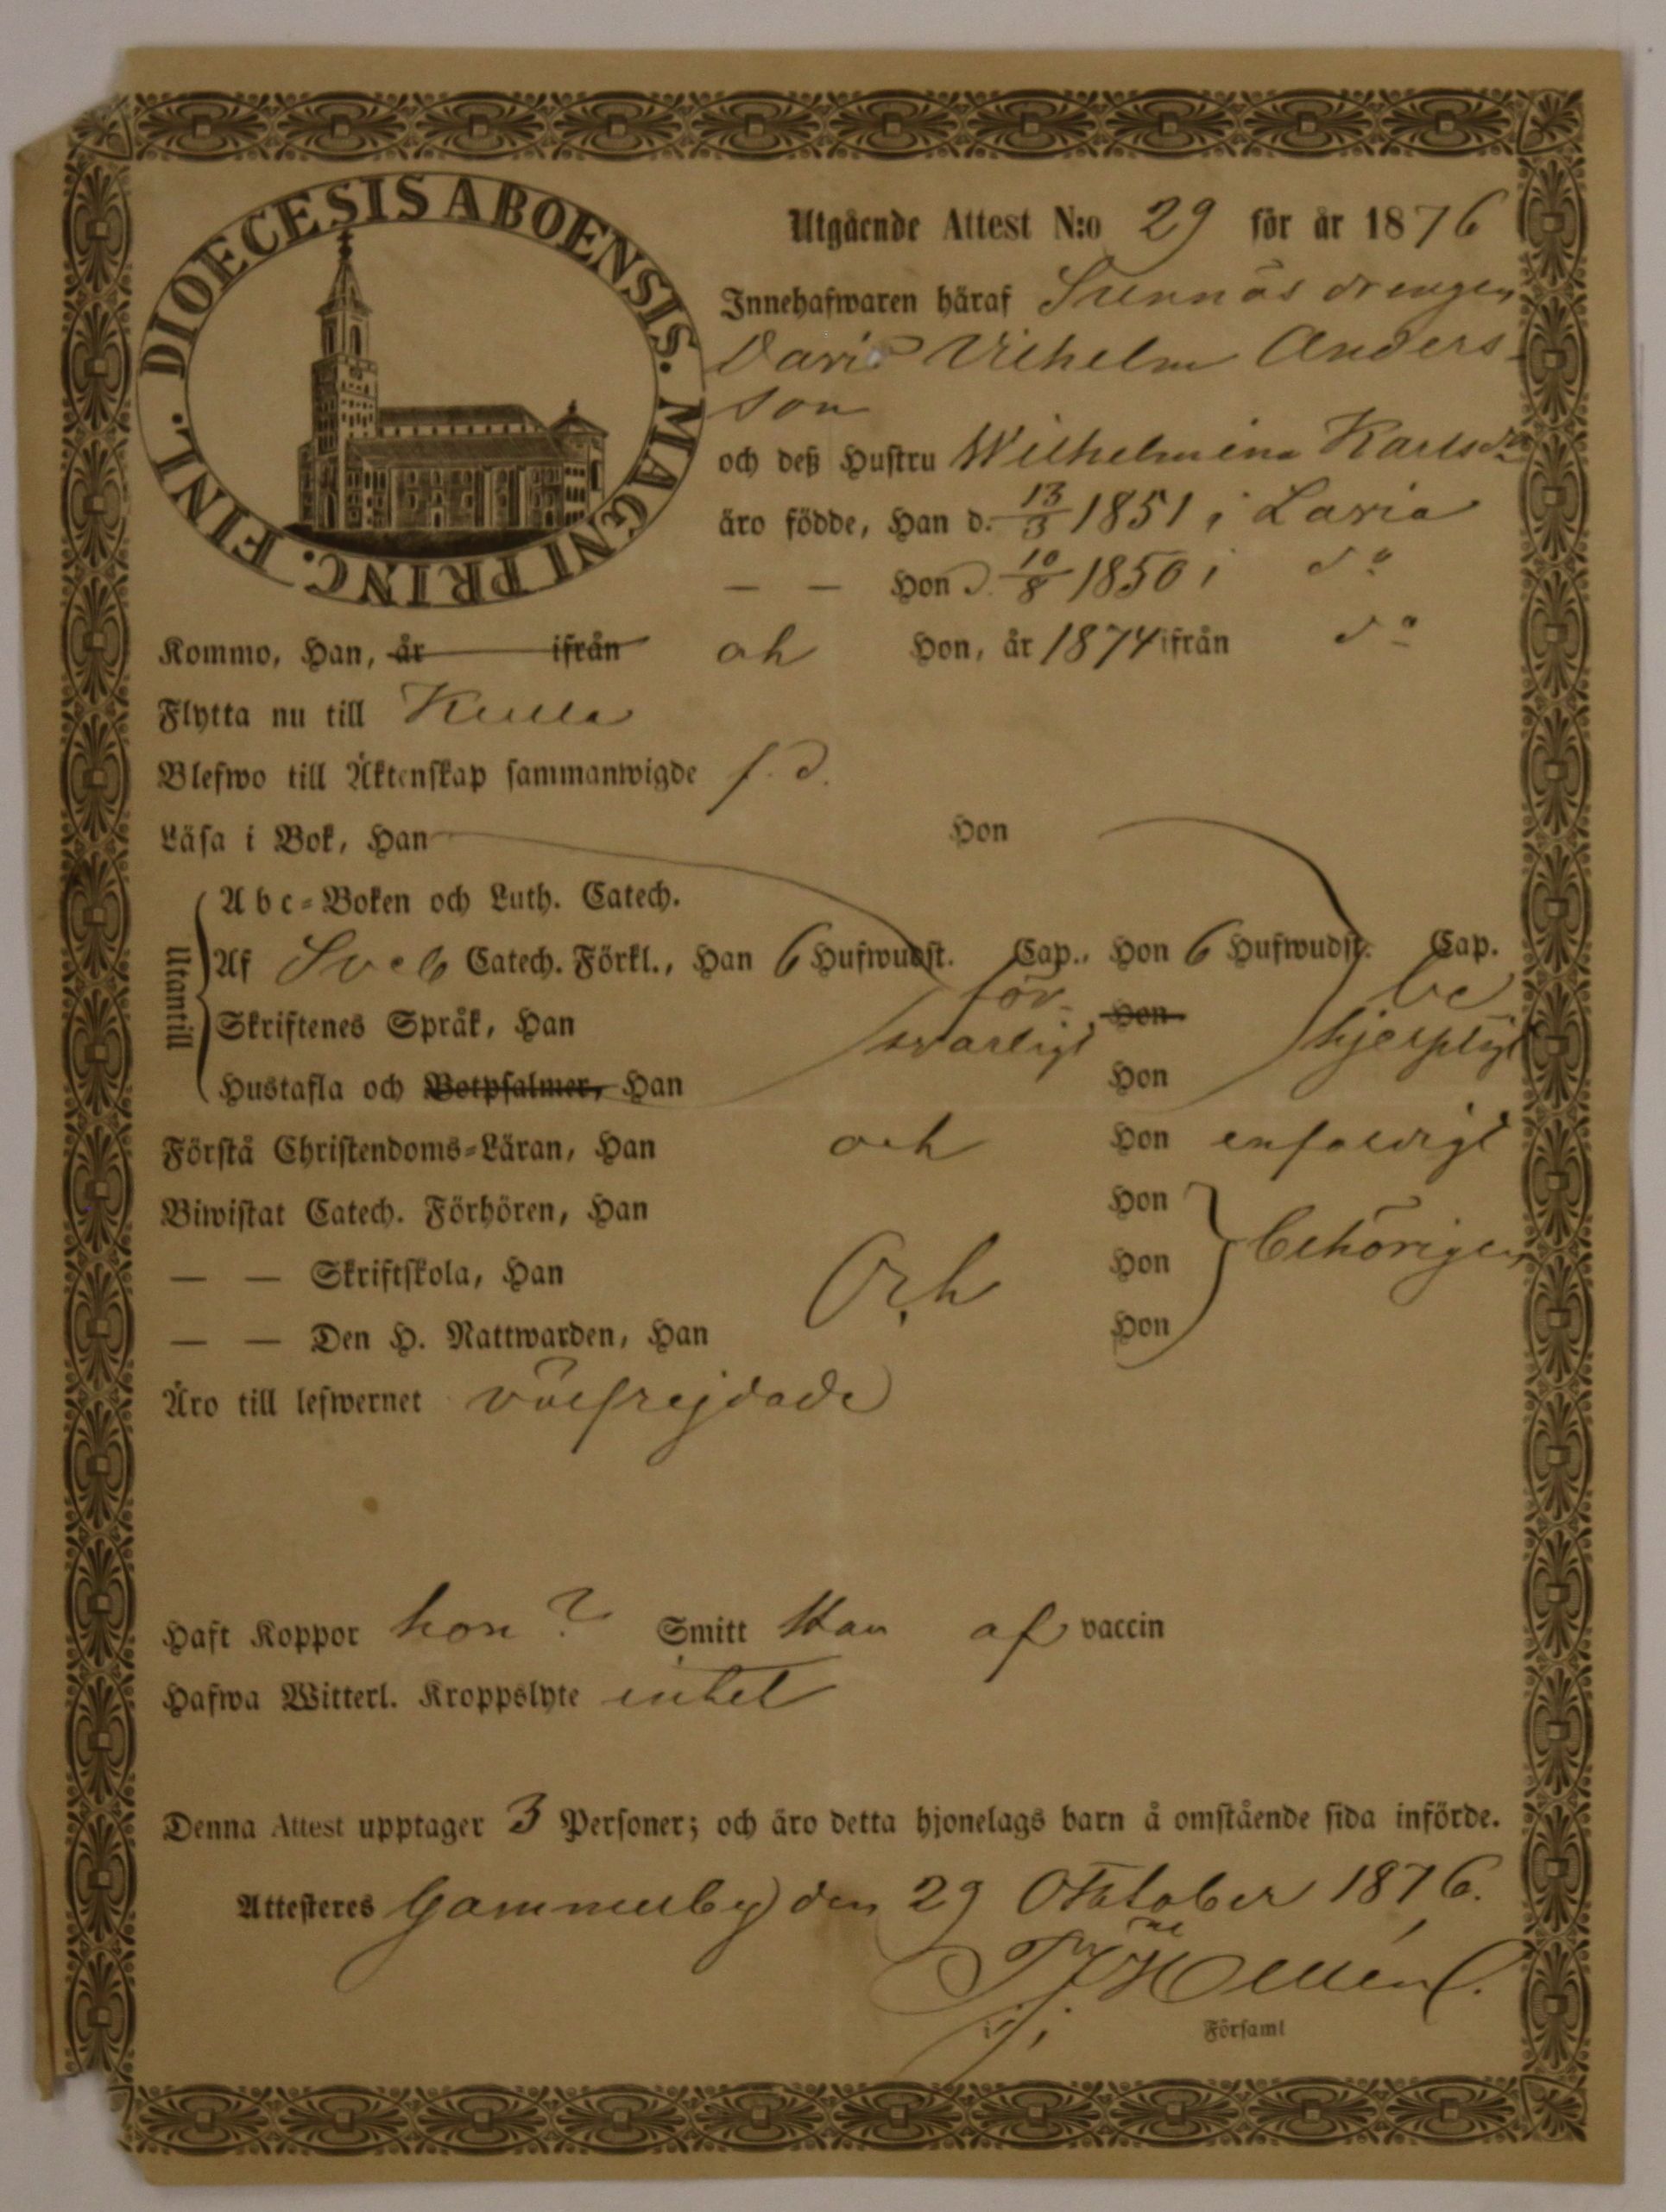 DIOECESIS ABOENSIS. MAGNI PRINC. FINL.
Utgående Attest N:o 29 för år 1876
Innehafwaren häraf Sunnäs drengen
David Vilhelm Anders-
son
och deß Hustru Wilhelmina Karlsdr
äro födde, Han d. 13/3 1851 i Lavia
— — Hon d. 10/8 1850 i do
Kommo, Han, år ifrån och Hon, år 1874 ifrån do
Flytta nu till Kulla
Blefwo till Äktenskap sammanwigde f. d.
Läsa i Bok, Han Hon
Utantill
Abc-Boken och Luth. Catech.
Af Sveb Catech. Förkl., Han 6 Hufwudst. Cap., Hon 6 Hufwudst. Cap.
Skriftenes Språk, Han för- Hon be
svarligt hjelpligt
Hustafla och Botpsalmer, Han Hon
Förstå Christendoms-Läran, Han och Hon enfaldigt
Biwistat Catech. Förhören, Han Hon
— — Skriftskola, Han Och Hon behörigen
— — Den H. Nattwarden, Han Hon
Äro till lefwernet välfrejdade
Haft Koppor hon ? Smitt Han af vaccin
Hafwa Witterl. Kroppslyte intet
Denna Attest upptager 3 Personer; och äro detta hjonelags barn å omstående sida införde.
Attesteres Gammelby den 29 Oktober 1876.
Församl